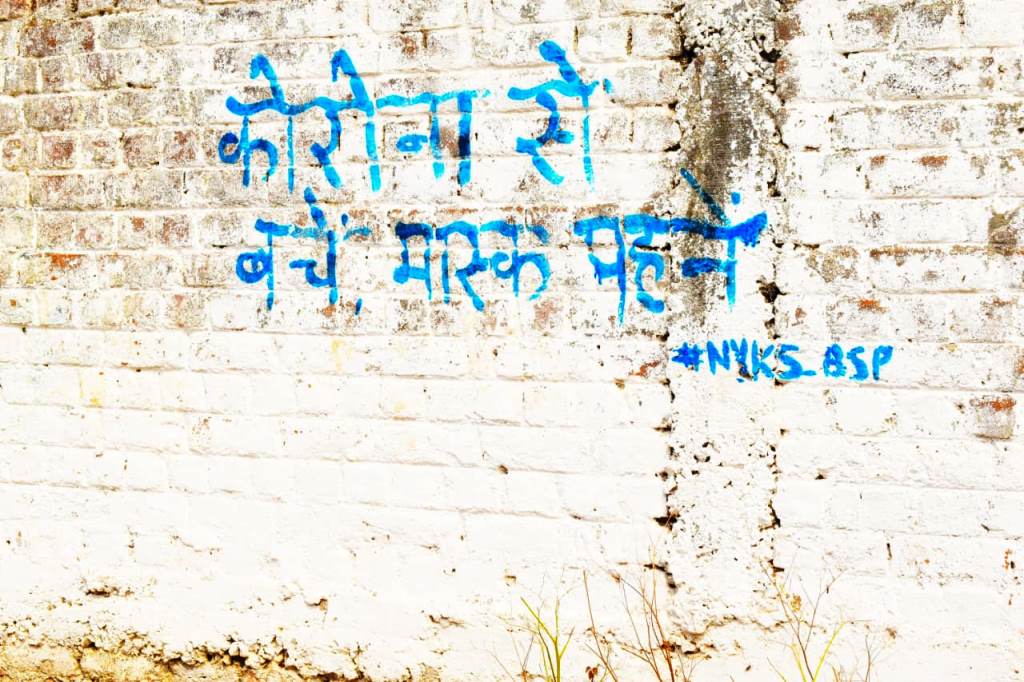 कोरोना से
बचें, मास्क पहनें
#NYKS_BSP